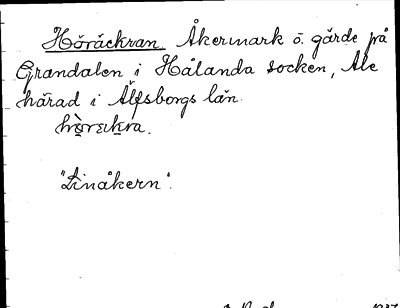 Höräckran Åkermark o. gärde på
Grandalen i Hålanda socken, Ale
härad i Älfsborgs län.
"Linåkern".